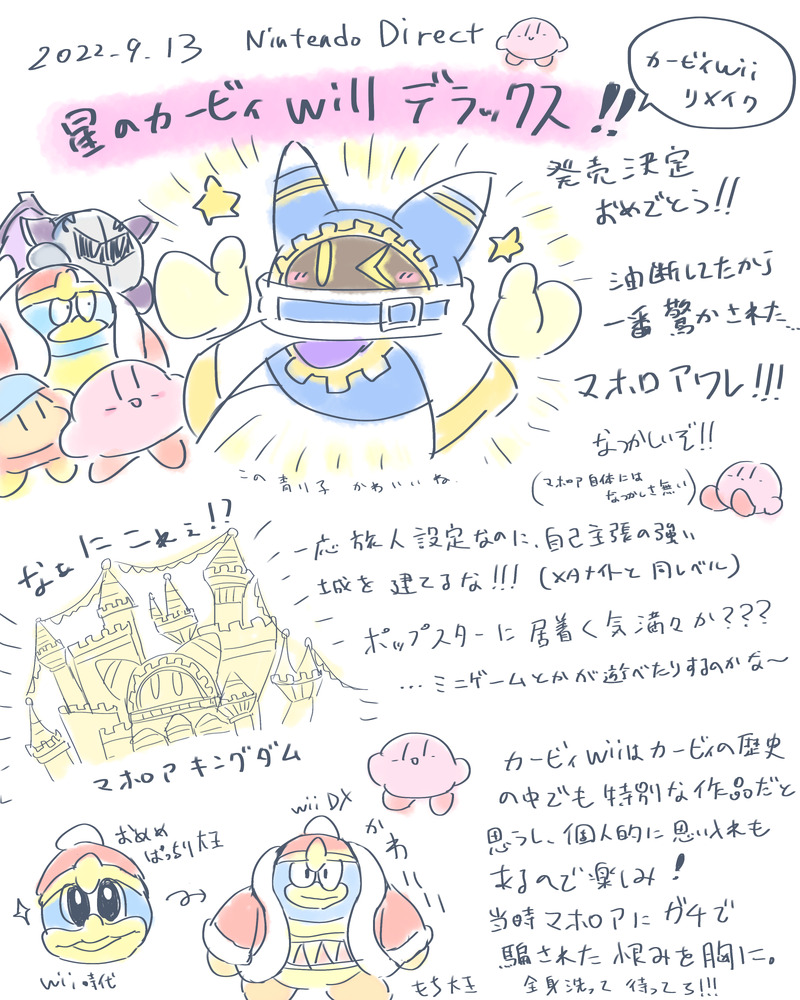 2022-9.13 Nintendo Direct
星のカービィ Wiii デラックス!!
カービィWii
リメイク
発売決定
おめでとう!!
油断してたから
一番驚かされた…
マホロアワレ!!!
なつかしいぞ!!
(マホロア自体には
なつかしさ無い)
この青り子かわいいね.
なぁにこれぇ!?
一応旅人設定なのに、自己主張の強い
城を建てるな!!! (メタナイトと同レベル)
ポップスターに居着く気満々か???
…ミニゲームとかが遊べたりするのかな〜
マホロアキングダム
カービィWiiはカービィの歴史
の中でも特別な作品だと
思うし、個人的に思い入れも
あるので楽しみ!
当時マホロアにガチで
騙された恨みを胸に。
全身洗って待ってろ!!!
おめめ
ぱっちり大王
wii時代
wii DX
かわ
もち大王